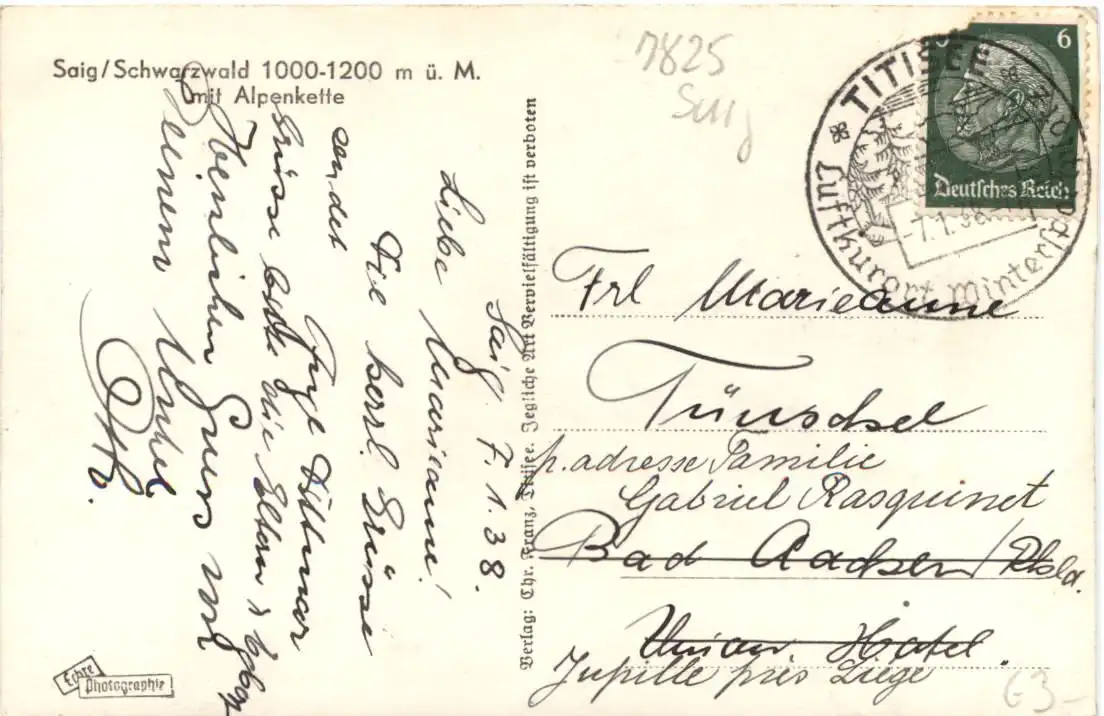 Saig/Schwarzwald 1000-1200 m ü. M.
mit Alpenkette
Saig, 7.1.38.
Liebe Marianne!
Die herzl. Grüsse
sendet
Grüsse bitte die Eltern &
Herzlichen Gruss von
Deinem Onkel
Echte
Photographie
Verlag: Chr. Franz, Titisee. Jegliche Art Vervielfältigung ist verboten
7825
Saig
TITISEE
Luftkurort Wintersport
-7.1.38
6
Deutsches Reich
Frl Marieanne
Tünschel
p. adresse Familie
Gabriel Rasquinet
Bad Aachen/Rhld.
Union Hotel.
Jupille près Liége
63-